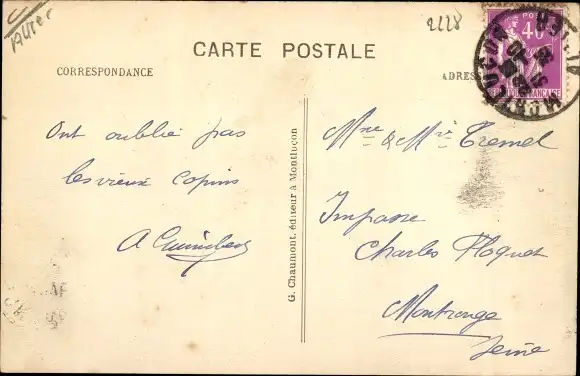 Allier
2228
CARTE POSTALE
CORRESPONDANCE
ADRESSE
POSTES
40
FRANÇAISE
Ont oublié pas
les vieux copins
A
G. Chaumont, éditeur à Montluçon
Mme & Mr Tremel
Impasse
Charles Floquet
Montrouge
Seine